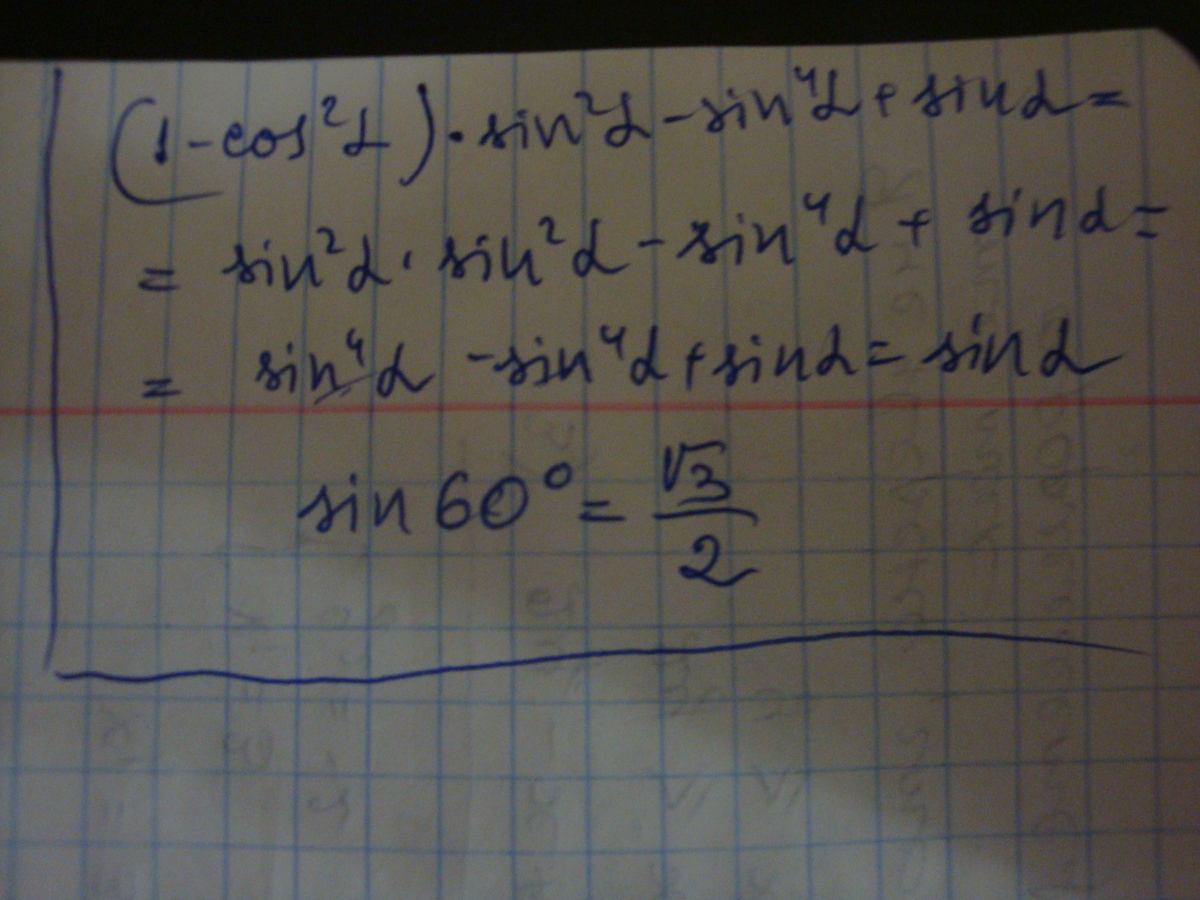 (1-cos²α)·sin²α-sin⁴α+sinα=
= sin²α·sin²α-sin⁴α+ sinα=
= sin⁴α -sin⁴α+sinα=sinα
sin60°=√3/2